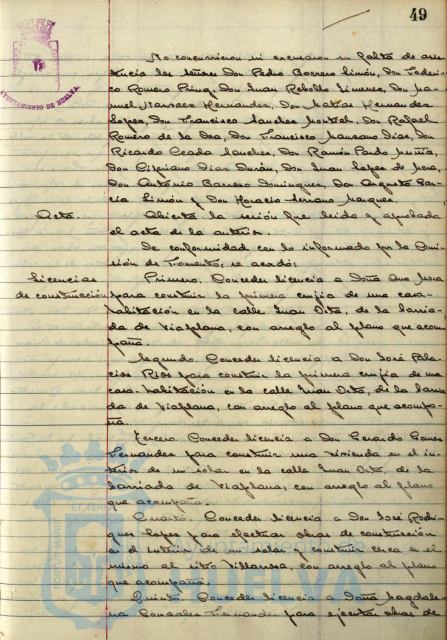 49
AYUNTAMIENTO DE HUELVA
No concurrieron ni excusaron su falta de asis-
tencia los señores Don Pedro Borrero Limón, Don Federi-
co Romero Don Juan Rebollo Jimenez, Don Ma-
nuel Narvaez Hernandez, Don Matias Hernandez
Lopez, Don Francisco Sanchez Don Rafael
Romero de la Don Francisco Manzano Dias, Don
Ricardo Sanchez, Don Ramón Pardo
Don Cipriano Dias Durán, Don Juan Lopez de
Don Antonio Barrero Dominguez, Don Augusto Gar-
cia Limón y Don Horacio Serrano Marquez.
Acta. Abierta la sesión fue leida y aprobada
el acta de la anterior.
De conformidad con lo informado por la Comi-
sión de Fomento, se acordó:
Licencias Primero. Conceder licencia a Doña Ana Mora
de construcción para construir la primera crujia de una casa-
habitación en la calle Juan Oita, de la barria-
da de Viaplana, con arreglo al plano que acom-
paña.
Segundo. Conceder licencia a Don José Pala-
cios Rios para construir la primera crujia de una
casa-habitación en la calle Juan Oita, de la barria-
da de Viaplana, con arreglo al plano que acompa-
ña.
Tercero. Conceder licencia a Don Gerardo Gomez
Fernandez para construir una vivienda en el in-
terior de un solar en la calle Juan Oita, de la
barriada de Viaplana, con arreglo al plano
que acompaña.
Cuarto. Conceder licencia a Don José Rodri-
guez Lopez para efectuar obras de construcción
en el interior de un solar y construir cerca en el
mismo al sitio Villarosa, con arreglo al plano
que acompaña.
Quinto. Conceder licencia a Doña Magdale-
na Gonzalez Fernandez para ejecutar obras de
HUELVA